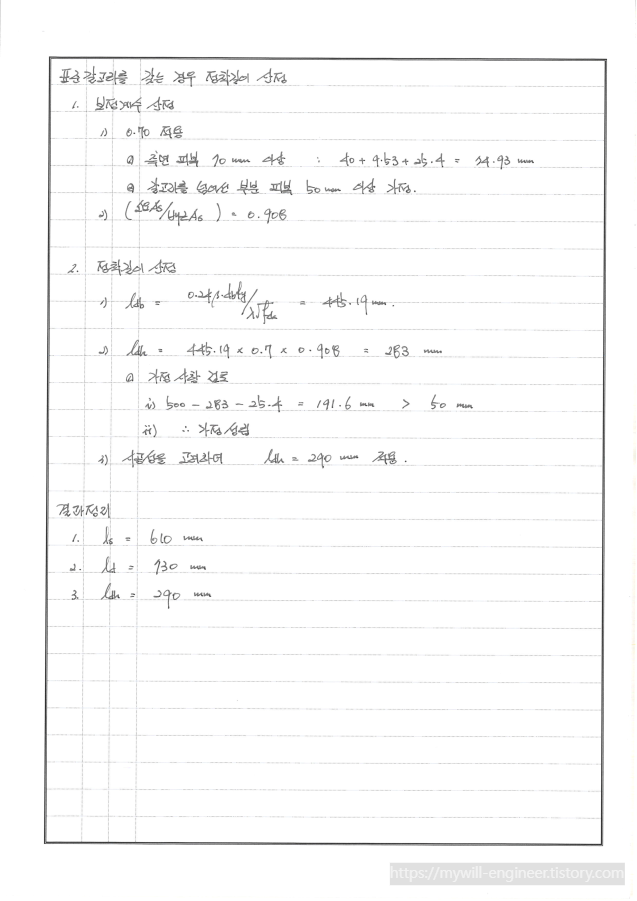 표준갈고리를 갖는 경우 정착길이 산정
1. 보정계수 산정
1) 0.70 적용
@ 측면 피복 70 mm 이상 : 40 + 9.53 + 25.4 = 74.93 mm
@ 갈고리를 넘어선 부분 피복 50 mm 이상 가정.
2) (소요As/배근As) = 0.908
2. 정착길이 산정
1) ldb = 0.24β·dbfy/λ√fck = 445.19 mm.
2) ldh = 445.19 × 0.7 × 0.908 = 283 mm
@ 가정사항 검토
i) 500 - 283 - 25.4 = 191.6 mm > 50 mm
ii) ∴ 가정성립
3) 시공성을 고려하여 ldh = 290 mm 적용.
결과정리
1. ls = 610 mm
2. ld = 730 mm
3. ldh = 290 mm
https://mywill-engineer.tistory.com